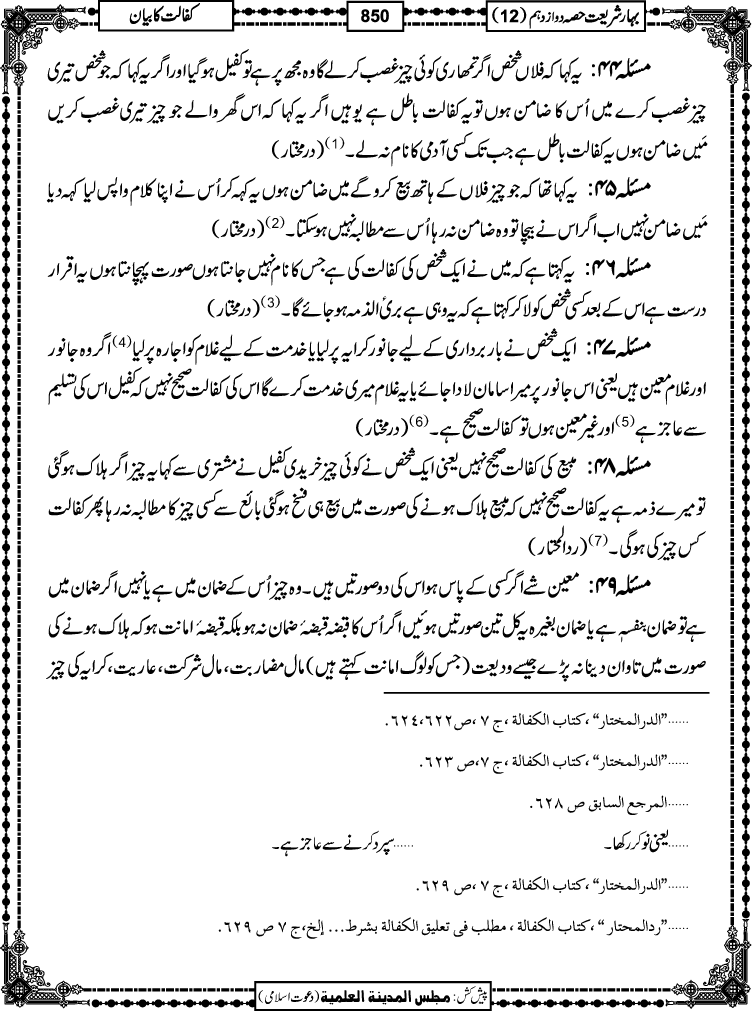 بہار شریعت حصہ دوازدہم (12)
850
کفالت کا بیان
مسئلہ ۴۴: یہ کہا کہ فلاں شخص اگر تمھاری کوئی چیز غصب کر لے گا وہ مجھ پر ہے تو کفیل ہوگیا اور اگر یہ کہا کہ جو شخص تیری
چیز غصب کرے میں اُس کا ضامن ہوں تو یہ کفالت باطل ہے یوہیں اگر یہ کہا کہ اس گھر والے جو چیز تیری غصب کریں
مَیں ضامن ہوں یہ کفالت باطل ہے جب تک کسی آدمی کا نام نہ لے۔(1) (درمختار)
مسئلہ ۴۵: یہ کہا تھا کہ جو چیز فلاں کے ہاتھ بیع کروگے میں ضامن ہوں یہ کہہ کر اُس نے اپنا کلام واپس لیا کہہ دیا
مَیں ضامن نہیں اب اگر اس نے بیچا تو وہ ضامن نہ رہا اُس سے مطالبہ نہیں ہوسکتا۔(2) (درمختار)
مسئلہ ۴۶: یہ کہتا ہے کہ میں نے ایک شخص کی کفالت کی ہے جس کا نام نہیں جانتا ہوں صورت پہچانتا ہوں یہ اقرار
درست ہے اس کے بعد کسی شخص کو لاکر کہتا ہے کہ یہ وہی ہے بریٔ الذمہ ہو جائے گا۔(3) (درمختار)
مسئلہ ۴۷: ایک شخص نے بار برداری کے لیے جانور کرایہ پر لیا یا خدمت کے لیے غلام کو اجارہ پر لیا(4) اگر وہ جانور
اور غلام معین ہیں یعنی اس جانور پر میرا سامان لادا جائے یا یہ غلام میری خدمت کرے گا اس کی کفالت صحیح نہیں کہ کفیل اس کی تسلیم
سے عاجز ہے(5) اور غیر معین ہوں تو کفالت صحیح ہے۔(6) (درمختار)
مسئلہ ۴۸: مبیع کی کفالت صحیح نہیں یعنی ایک شخص نے کوئی چیز خریدی کفیل نے مشتری سے کہا یہ چیز اگر ہلاک ہوگئی
تو میرے ذمہ ہے یہ کفالت صحیح نہیں کہ مبیع ہلاک ہونے کی صورت میں بیع ہی فسخ ہوگئی بائع سے کسی چیز کا مطالبہ نہ رہا پھر کفالت
کس چیز کی ہوگی۔(7) (ردالمحتار)
مسئلہ ۴۹: معین شے اگر کسی کے پاس ہو اس کی دو صورتیں ہیں۔ وہ چیز اُس کے ضمان میں ہے یا نہیں اگر ضمان میں
ہے تو ضمان بنفسہٖ ہے یا ضمان بغیرہ یہ کل تین صورتیں ہوئیں اگر اُس کا قبضہ قبضۂ ضمان نہ ہو بلکہ قبضۂ امانت ہو کہ ہلاک ہونے کی
صورت میں تاوان دینا نہ پڑے جیسے ودیعت (جس کو لوگ امانت کہتے ہیں) مال مضاربت، مال شرکت، عاریت، کرایہ کی چیز
......”الدرالمختار“، کتاب الکفالة ،ج ۷،ص۶۲۲،۶۲٤.
......”الدرالمختار“، کتاب الکفالة ،ج ۷،ص ۶۲۳.
......المرجع السابق ص ۶۲۸.
......یعنی نوکر رکھا۔ ......سپرد کرنے سے عاجز ہے۔
......”الدرالمختار“، کتاب الکفالة ،ج ۷،ص ۶۲۹.
......”ردالمحتار“، کتاب الکفالة ، مطلب فی تعلیق الکفالة بشرط... إلخ،ج ۷ ص ۶۲۹.
پیش کش: مجلس المدینة العلمیة (دعوت اسلامی)